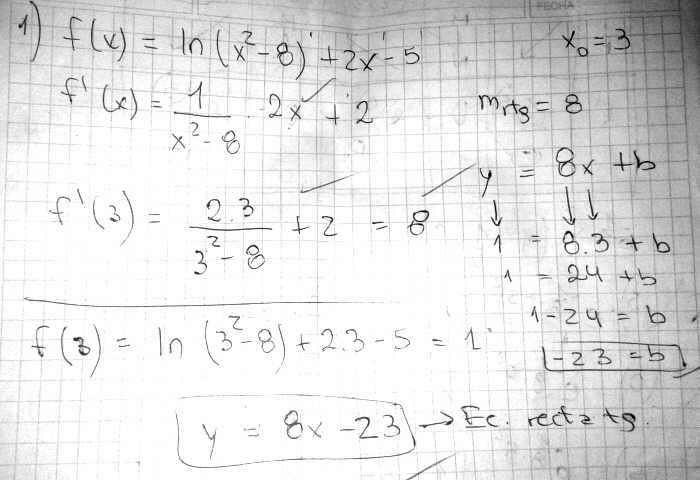 FECHA
1) f(x) = ln(x²-8) + 2x - 5
x₀ = 3
f'(x) = 1/(x²-8) · 2x + 2
m rtg = 8
y = 8x + b
f'(3) = 2.3/(3²-8) + 2 = 8
↓ ↓↓
1 = 8.3 + b
1 = 24 + b
1-24 = b
-23 = b
f(3) = ln (3²-8) + 2.3 - 5 = 1
y = 8x - 23 → Ec. recta tg.